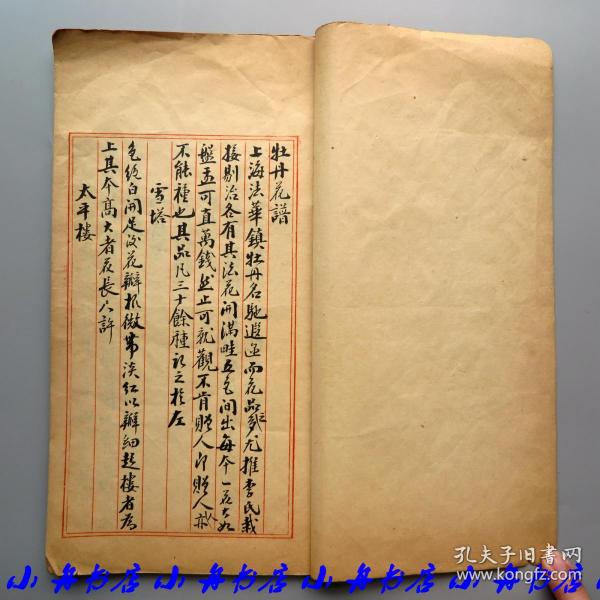 牡丹花譜
上海法華鎮牡丹名馳遐邇而花品之多尤推李氏栽
接剔治各有其法花開滿畦五色間出每本一花大如
盤盂可直萬錢然止可就觀不肯贈人即贈人亦
不能種也其品凡三十餘種祀之於左
雪塔
色純白開足後花瓣根微帶淡紅以瓣細起樓者為
上其本高大者夜長六許
太平樓
孔夫子旧书网
www.kongfz.com
小舟书店 小舟书店 小舟书店 小舟书店